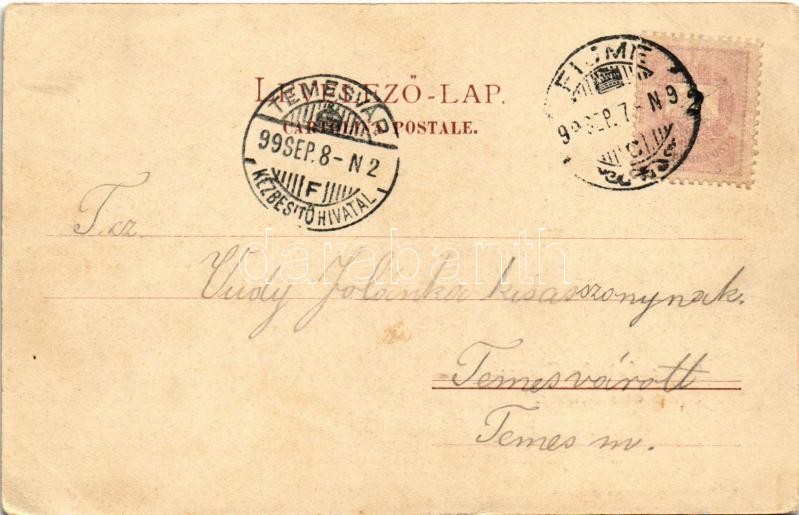 LEVELEZŐ-LAP.
CARTOLINA POSTALE.
TEMESVÁR
99 SEP. 8 - N 2
F
KÉZBESITŐ HIVATAL
FIUME
99 SEP. 7 - N 9
T. cz.
Vudy Jolánka kisasszonynak.
Temesvárott
Temes m.
darabanth